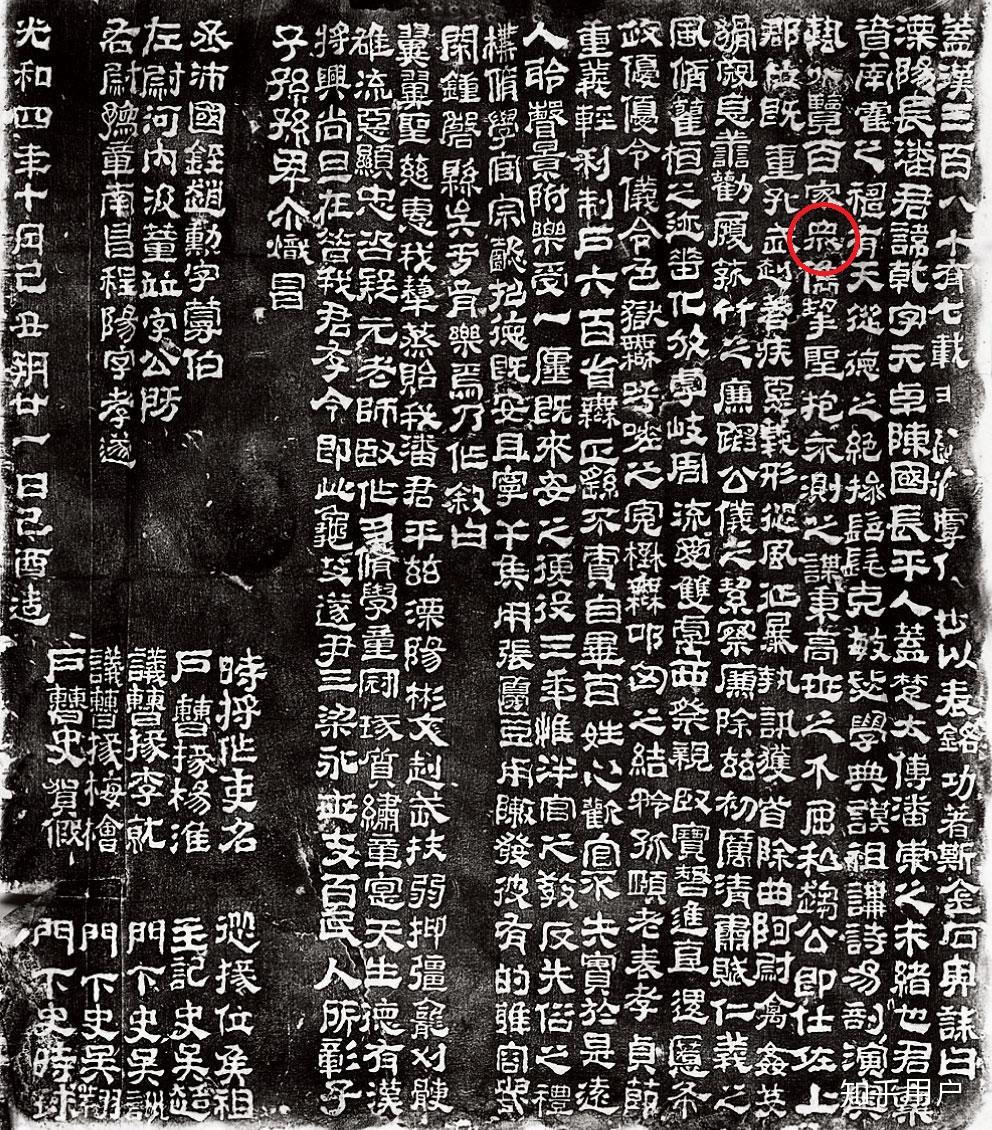 蓋漢三百八十有七載銘功著斯金石畀誄曰
溧陽長潘君諱乾字元卓陳國長平人蓋楚太傅潘崇之末緒也君稟
資南霍之神有天從德之絶操髫髦克敏志學典謨祖講詩易剖演奧
藝外覽百家衆儁挈聖抱不測之謀秉高世之介屈私趨公即仕佐上
郡位既重孔武赳著疾惡義形從風征暴執訊獲首除曲阿尉禽姦戔
猾寇息善歡履菰竹之廉蹈公儀之絜察廉除兹初厲清肅賦仁義之
風脩桓之迹惠化放虖岐周流愛雙虖親臤寶智進直退慝布
政優優令儀令色獄無呼嗟之冤壄無叩匈之結矜孤頤老表孝貞節
重義輕利制戶六百省無正繇不責自畢百姓心歡官不失實於是遠
人聆聲景附樂受一廛既來安之復役三年惟泮宮之教反失俗之禮
構脩學官宗懿招德既安且寧干侯用張籩豆用敶發彼有的雅容畢
閑鍾磬縣矣于胥樂焉乃作敘曰
翼翼聖慈惠我犂蒸貽我潘君平兹溧陽彬文赳武扶弱抑彊刈骾
雄流惡顯忠咨疑元老師臤作朋脩學童冠琢質繡章寔天生德有漢
將興尚旦在昔我君存今即此龜艾遂尹三梁永世支百民人所彰子
子孫孫卑尒熾昌
丞沛國銍趙勳字蔓伯
左尉河內汲董並字公房
右尉豫章南昌程陽字孝遂
時將作吏名
戶曹掾楊淮
議曹掾李就
議曹掾梅檜
戶曹史賀
從掾位侯祖
主記史吳超
門下史吳訓
門下史吳翔
門下史時球
光和四年十月己丑朔廿一日己酉造
知乎用户